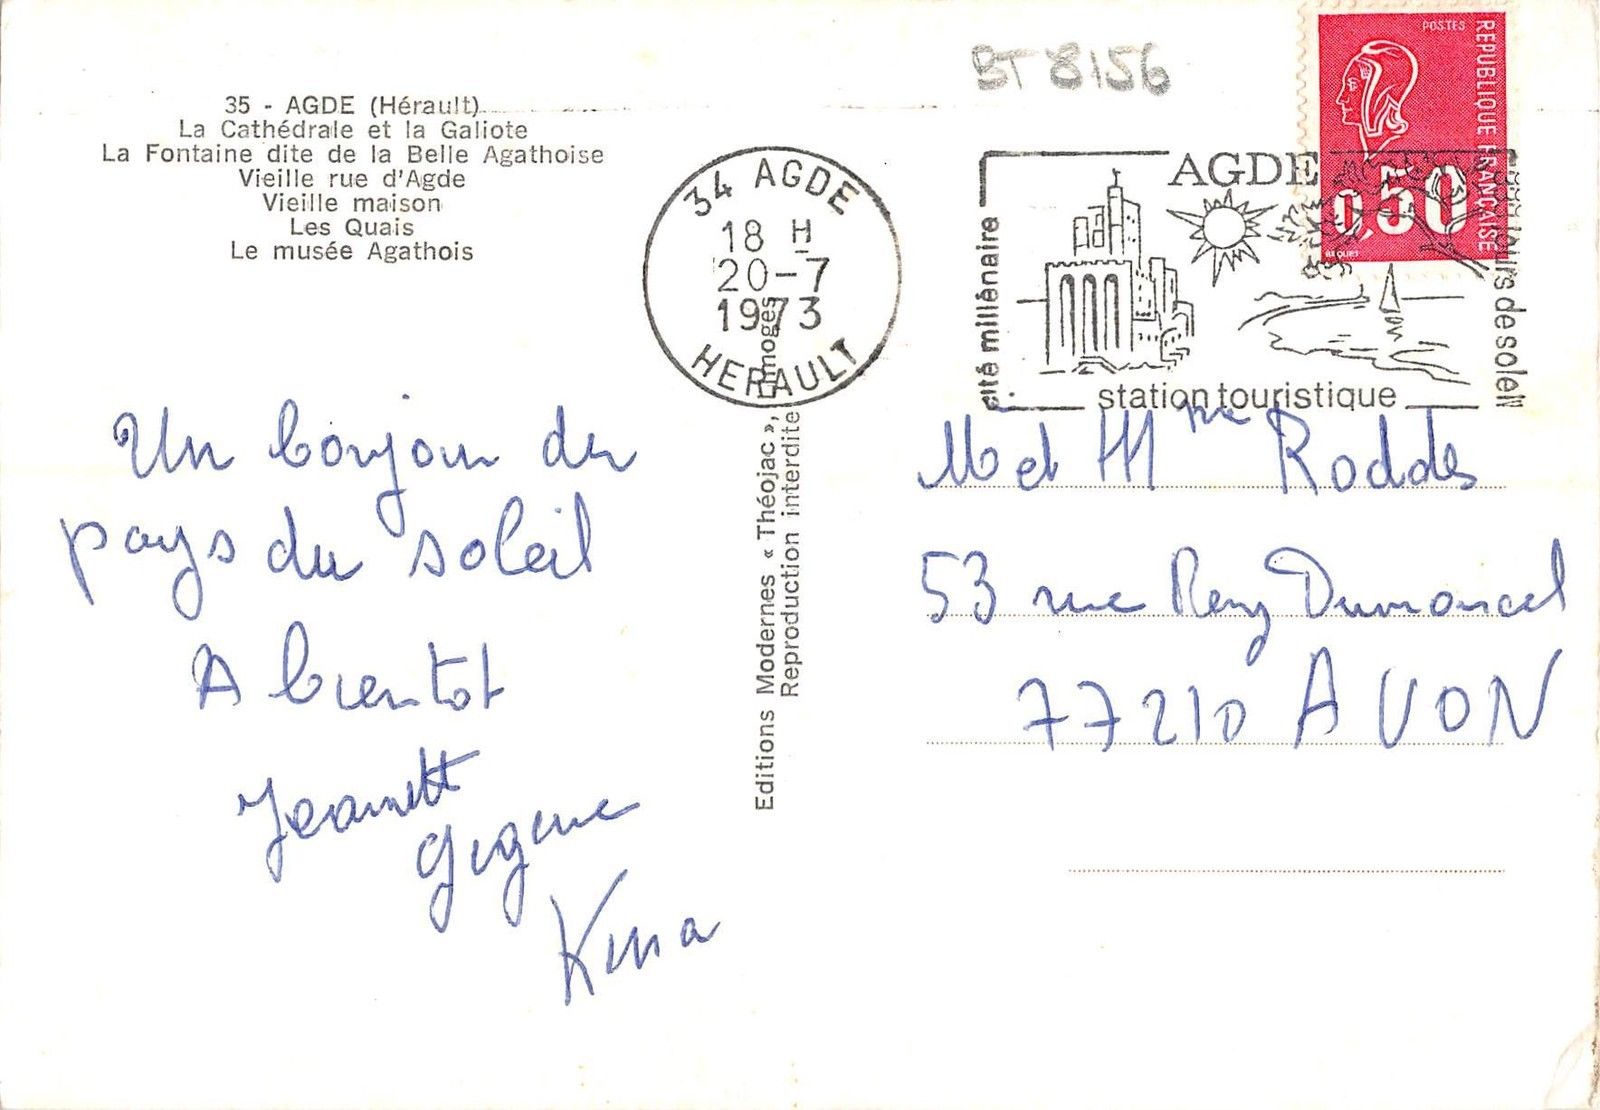 BT 8156
POSTES
REPUBLIQUE FRANCAISE
0,50
BEQUET
35 - AGDE (Hérault)
La Cathédrale et la Galiote
La Fontaine dite de la Belle Agathoise
Vieille rue d'Agde
Vieille maison
Les Quais
Le musée Agathois
34 AGDE
18 H
20-7
1973
HERAULT
AGDE
cité millénaire
jours de soleil
station touristique
Editions Modernes « Théojac », Limoges
Reproduction interdite
Un bonjour du
pays du soleil
A bientot
Jeannette
Gégène
M et Mme Roddes
53 rue Remy Dumoncel
77210 AVON